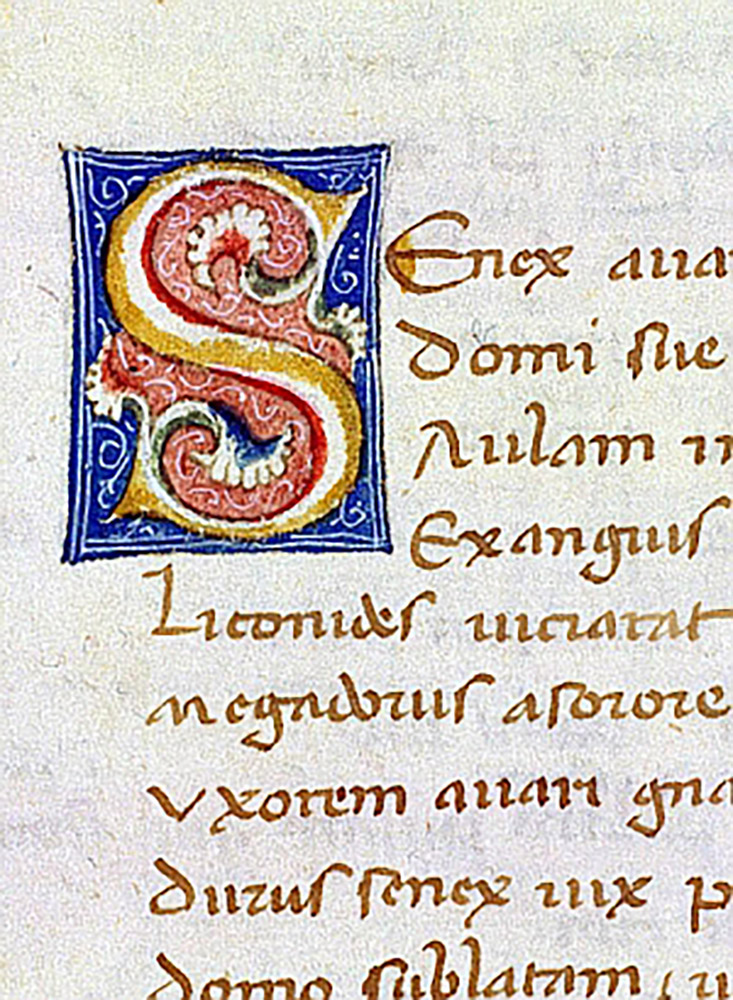 SEnex aua
Domi sue
Aulam in
Exanguis
Liconides uiciarat
megadorus asorore
vxorem auari gna
durus senex uix p
domo sublatam